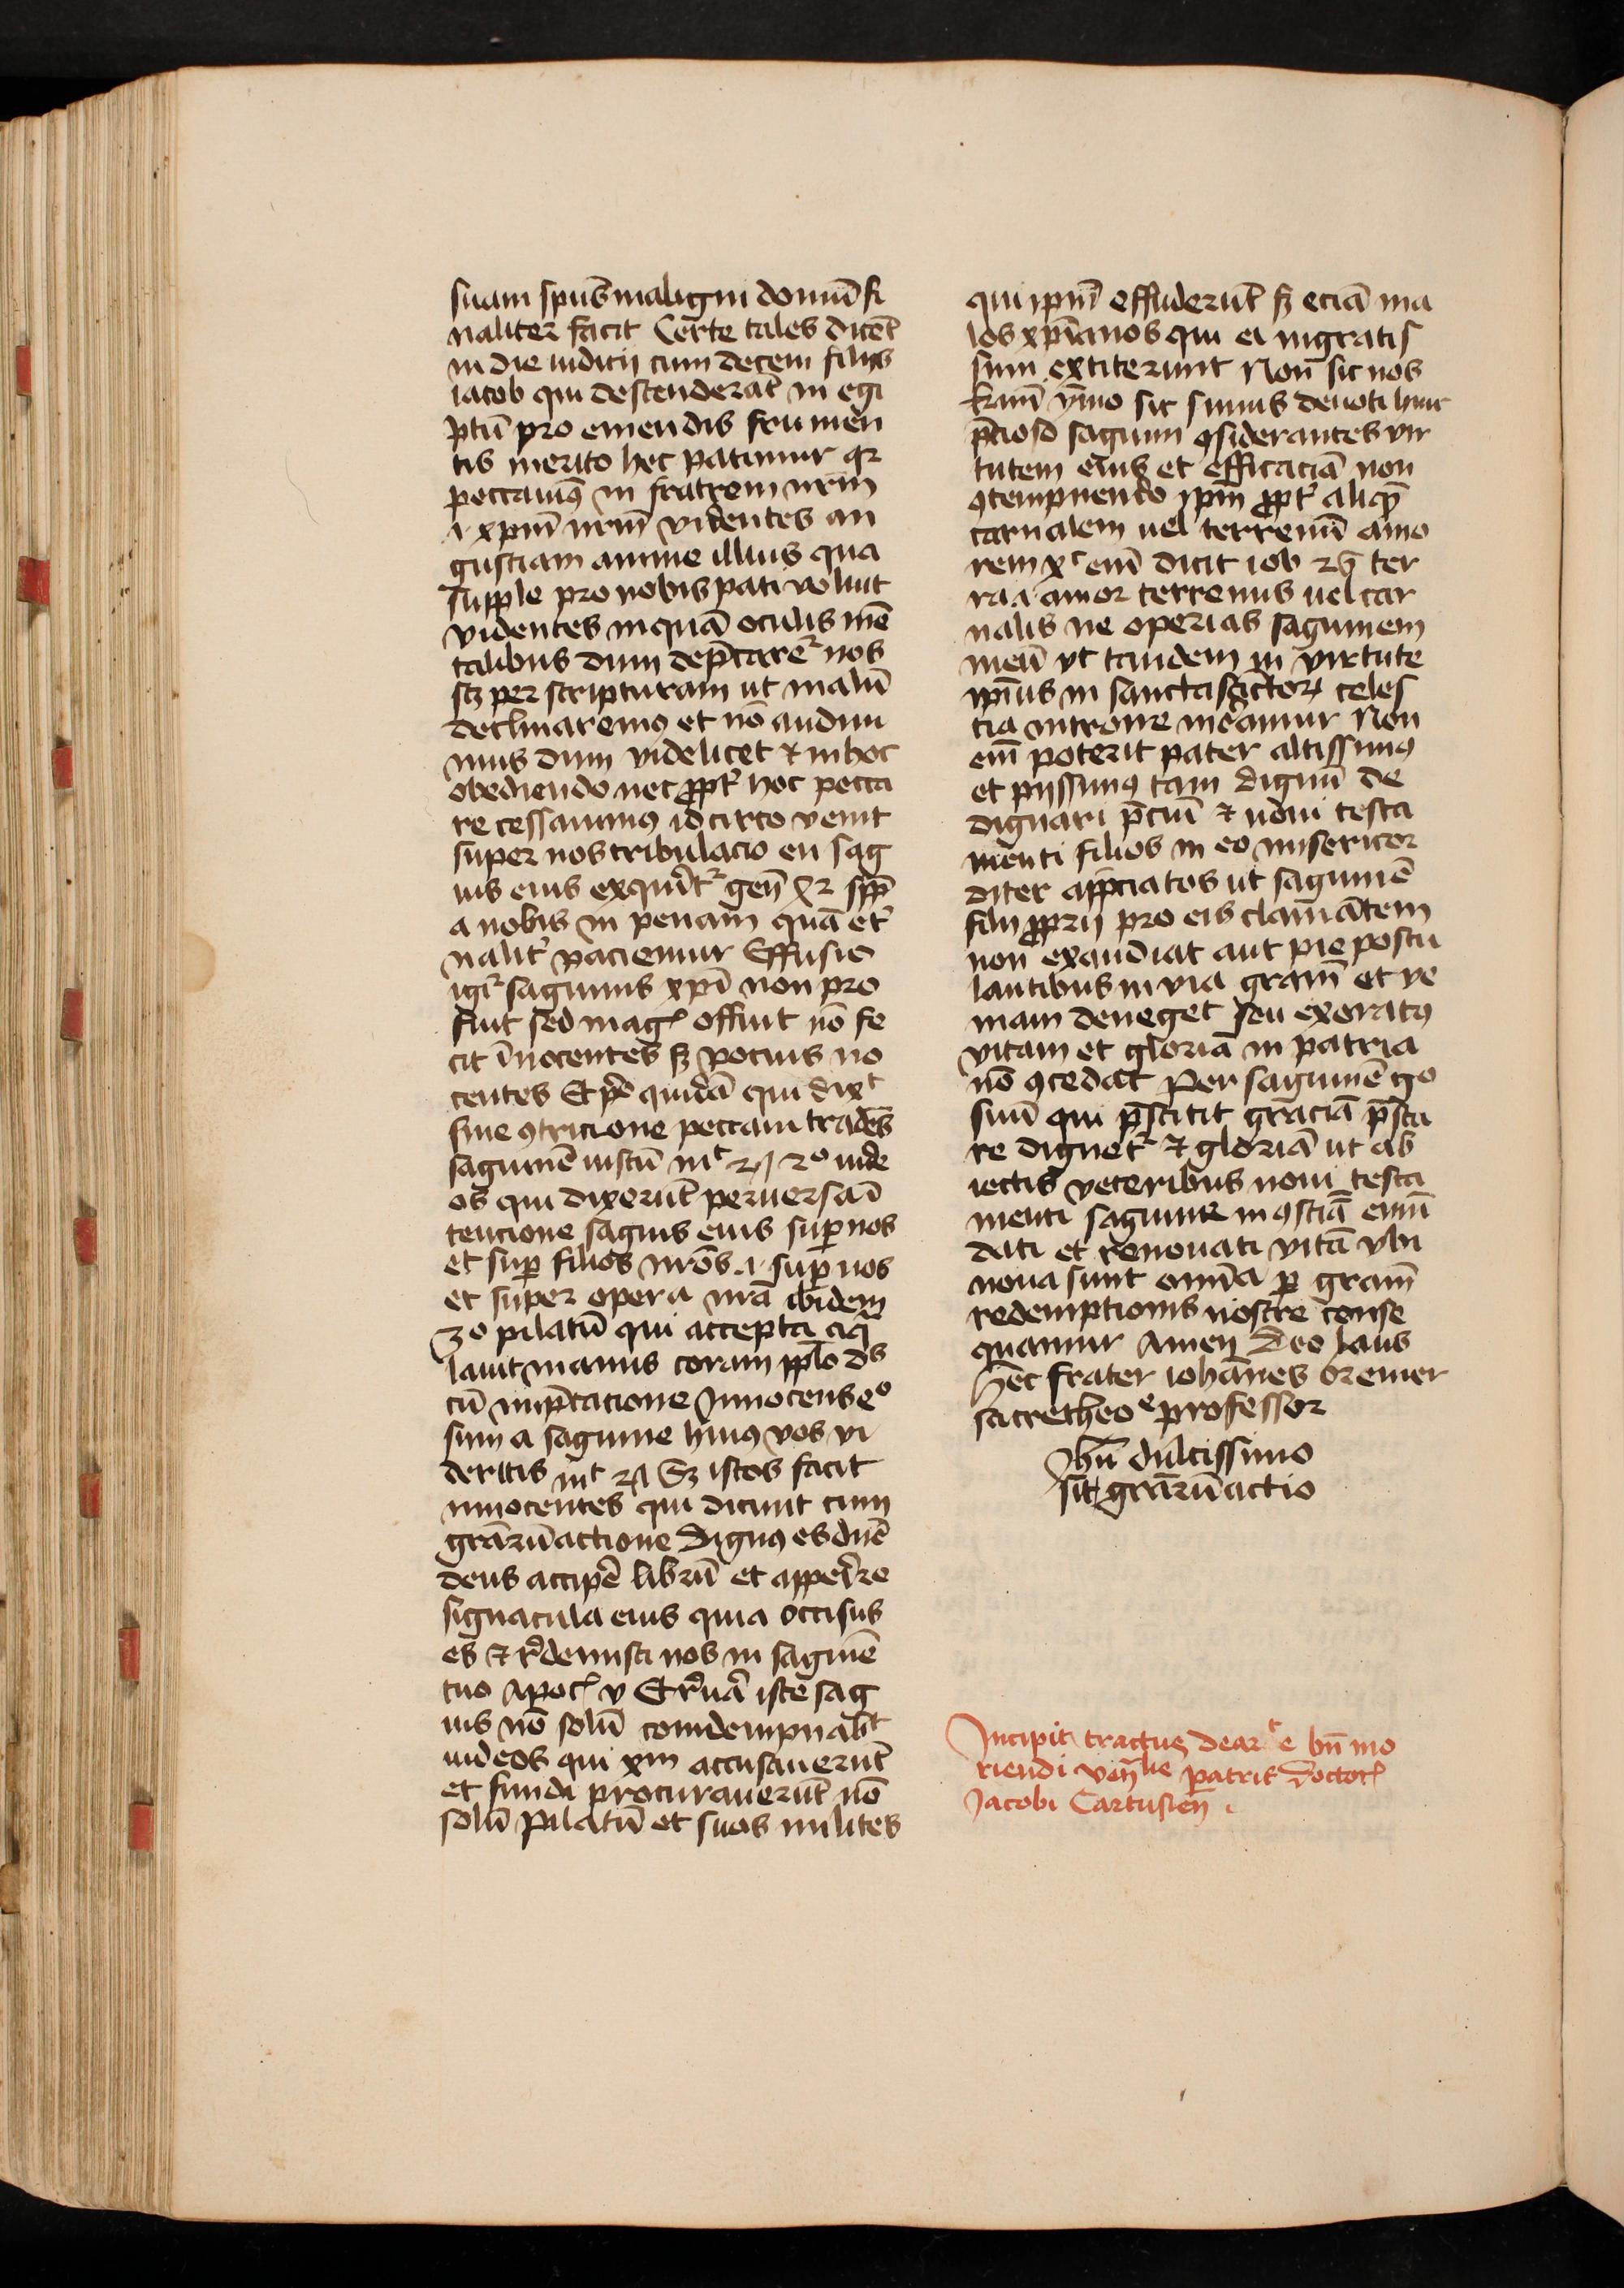 suam spūs maligni domū fi
naliter facit Certe tales dicēt
in die iudicij cum decem filijs
iacob qui descenderāt in egi
ptū pro emendis frumen
tis merito hec patimur qr
peccauimꝰ in fratrem nrm̄
.i. xpm̄ nrm̄ videntes an
gustiam anime illius qua
supple pro nobis pati voluit
videntes inquā oculis mē
talibus dum dep̄caret᷑ nos
sꝫ per scripturam ut malū
declinaremꝰ et nō audiui
mus dum videlicet ⁊ in hoc
obediendo nec ꝓpt᷑ hoc pecca
re cessauimꝰ idcirco venit
super nos tribulacio en sag
uis eius exquirit᷑ geñ
a nobis in penam quā et᷑
nalit᷑ paciemur Effusio
igit᷑ sagwinis xp̄i non pro
fuit sed magꝭ offuit nō fe
cit īnocentes sꝫ pocius no
centes quidā qui dixᵗ
sine ꝯtricione peccaui tradēs
sagwinē iustū mᵗ 27 2º iude
os qui dixerūt peruersa ī
tencione sagwis eius sup̄ nos
et sup̄ filios nr̄os .i. sup̄ nos
et super opera nr̄a ibidem
3º pilatū qui accepta aq̄
lauit manus coram pplo dꝭ
cū imp̄cacione Innocens eº
sum a sagwine huiꝰ vos vi
deritis mᵗ 27 Sꝫ istos facit
innocentes qui dicunt cum
grāꝝ actione Dignꝰ es dn̄e
deus accip̄e librū et apper̄ire
signacula eius quia occisus
es ⁊ r̄demisti nos in sagwinē
tuo Apocꝭ v iste sag
uis nō solū comdempnabit
iudeos qui xm̄ accusauerūt
et fundi procurauerūt nō
solū Pilatū et suos milites
qui ipm̄ effuderūt sꝫ eciā ma
los xp̄ianos qui ei ingratis
simi extiterunt Non sic nos
kar̄mi ymmo sic simus deuoti huic
p̄cioso sagwini ꝯsiderantes vir
tutem eius et efficaciā non
ꝯtempnendo ipm̄ ꝓpt᷑ aliqē
carnalem uel terrenū amo
rem eīm dicit iob 16 ter
ra .i. amor terrenus uel car
nalis ne operias sagwinem
meū vt tandem in virtute
ip̄ius in sancta sāctoꝝ celes
tia introire mēamur Non
eīm poterit pater altissimꝰ
et pijssimꝰ tam dignū de
dignari p̄ciū ⁊ noui testa
menti filios in eo misericor
diter app̄ciatos ut sagwinē
filij ꝓprij pro eis clamātem
non exaudiat aut pie postu
lantibus in via gram̄ et ve
niam deneget seu exoratꝰ
vitam et gloriā in patria
nō ꝯcedat Per sagwinē gº
suū qui p̄stitit graciā p̄sta
re dignet᷑ ⁊ gloriā ut ab
iectis veteribus noui testa
menti sagwine in ꝯsciā emū
dati et renouati vitā vbi
noua sunt omīa p̄ gram̄
redemptionis nostre conse
quamur Amen Deo laus
hec frater iohānes bremer
sacre theoᵉ professor
Ihū dulcissimo
sit grāꝝ actio
Incipit tractꝰ de arᵗe bn̄ mo
riendi ven̄ˡⁱˢ patris doctorꝭ
Jacobi Cartusien̄ .